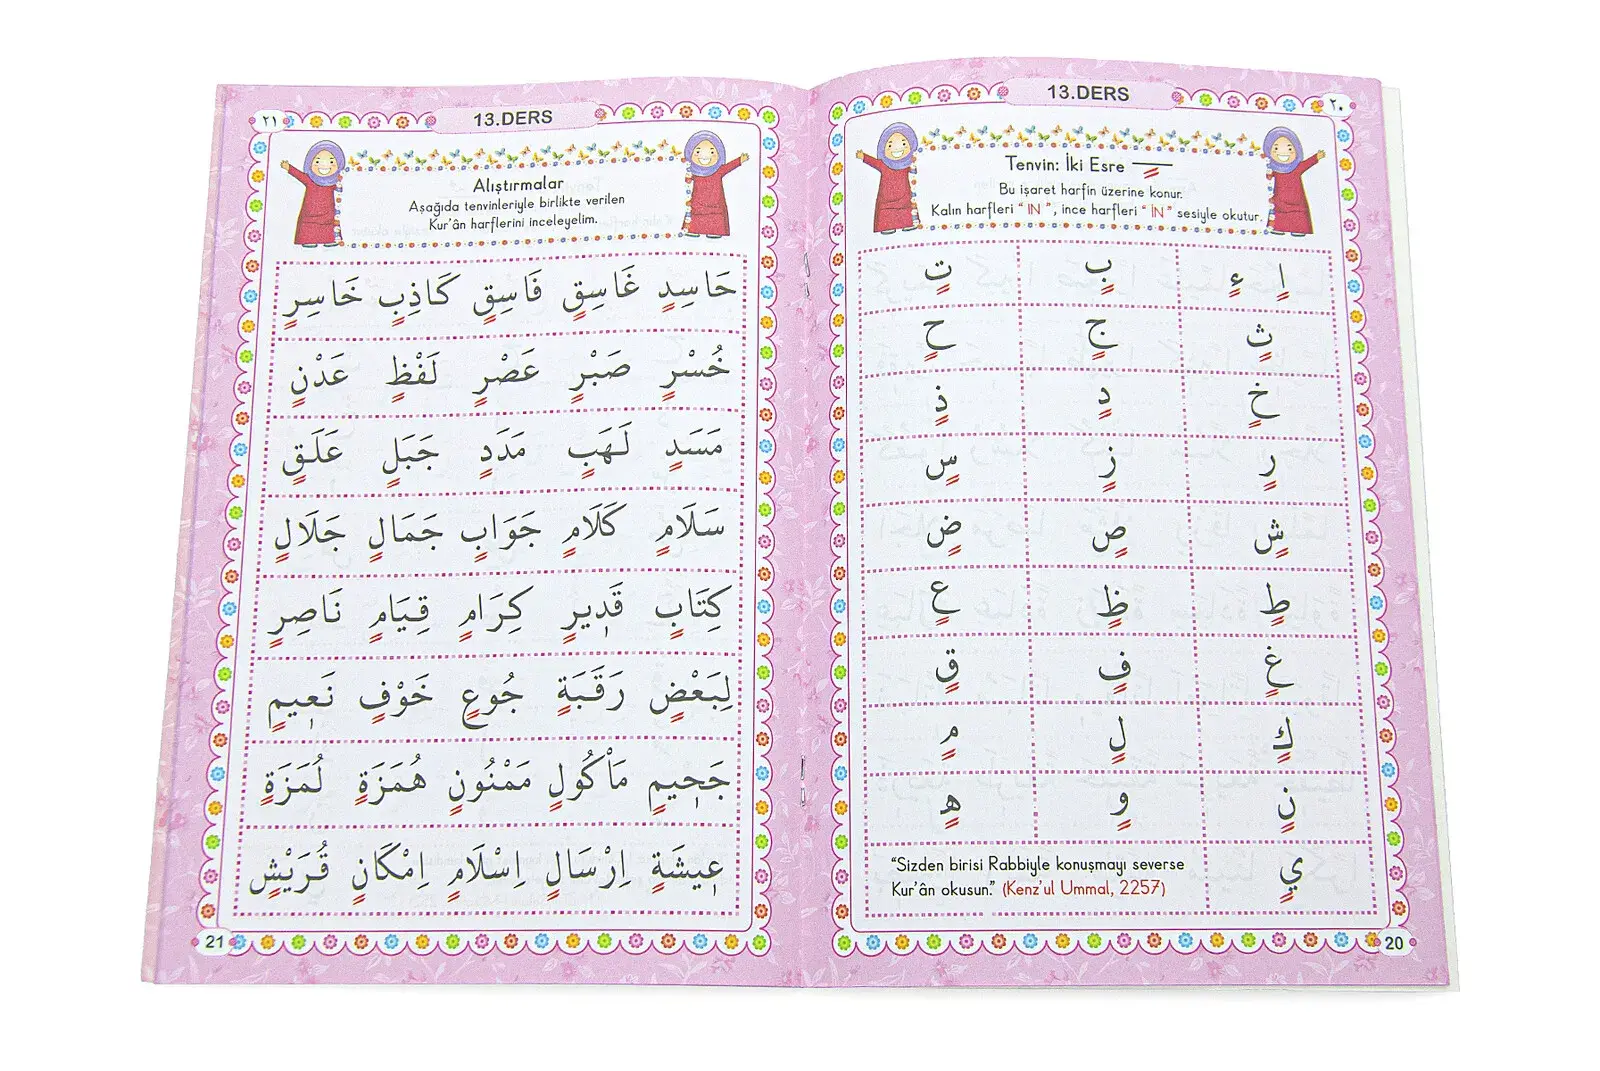 ٢٠
13.DERS
Tenvin: İki Esre
Bu işaret harfin üzerine konur.
Kalın harfleri “ IN ”, ince harfleri “ İN ” sesiyle okutur.
اٍ ءٍ بٍ تٍ
ثٍ جٍ حٍ
خٍ دٍ ذٍ
رٍ زٍ سٍ
شٍ صٍ ضٍ
طٍ ظٍ عٍ
غٍ فٍ قٍ
كٍ لٍ مٍ
نٍ وٍ هٍ
يٍ
“Sizden birisi Rabbiyle konuşmayı severse
Kur’ân okusun.” (Kenz’ul Ummal, 2257)
20
٢١
13.DERS
Alıştırmalar
Aşağıda tenvinleriyle birlikte verilen
Kur’ân harflerini inceleyelim.
حَاسِدٍ غَاسِقٍ فَاسِقٍ كَاذِبٍ خَاسِرٍ
خُسْرٍ صَبْرٍ عَصْرٍ لَفْظٍ عَدْنٍ
مَسَدٍ لَهَبٍ مَدَدٍ جَبَلٍ عَلَقٍ
سَلَامٍ كَلَامٍ جَوَابٍ جَمَالٍ جَلَالٍ
كِتَابٍ قَدٖيرٍ كِرَامٍ قِيَامٍ نَاصِرٍ
لِبَعْضٍ رَقَبَةٍ جُوعٍ خَوْفٍ نَعٖيمٍ
جَحٖيمٍ مَاْكُولٍ مَمْنُونٍ هُمَزَةٍ لُمَزَةٍ
عٖيشَةٍ اِرْسَالٍ اِسْلَامٍ اِمْكَانٍ قُرَيْشٍ
21